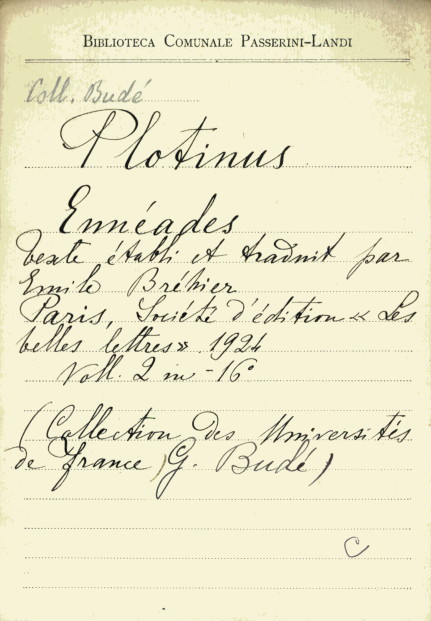 BIBLIOTECA COMUNALE PASSERINI-LANDI
Coll. Budé
Plotinus
Ennéades
texte établi et traduit par
Emile Bréhier
Paris, Société d'édition « Les
belles lettres » 1924
Voll. 2 in-16°
(Collection des Universités
de France) G. Budé)
C